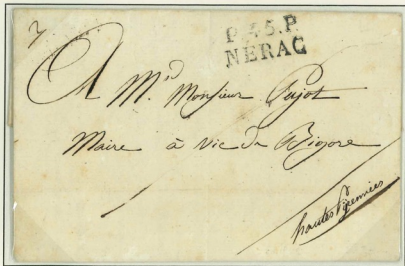 P.45.P.
NERAC
A M. Monsieur Pujot
Maire à Vic de Bigore
hautes Pyrennées